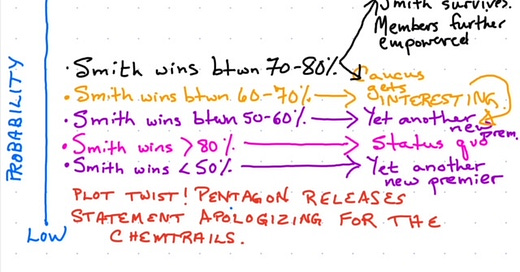 Smith survives.
Members further
empowered
• Smith wins btwn 70-80%
Caucus
gets
• Smith wins btwn 60-70% → INTERESTING
• Smith wins btwn 50-60% → Yet another
new prem.
• Smith wins >80% → Status quo
• Smith wins <50% → Yet another
new premier
PLOT TWIST! PENTAGON RELEASES
STATEMENT APOLOGIZING FOR THE
CHEMTRAILS.
PROBABILITY
LOW